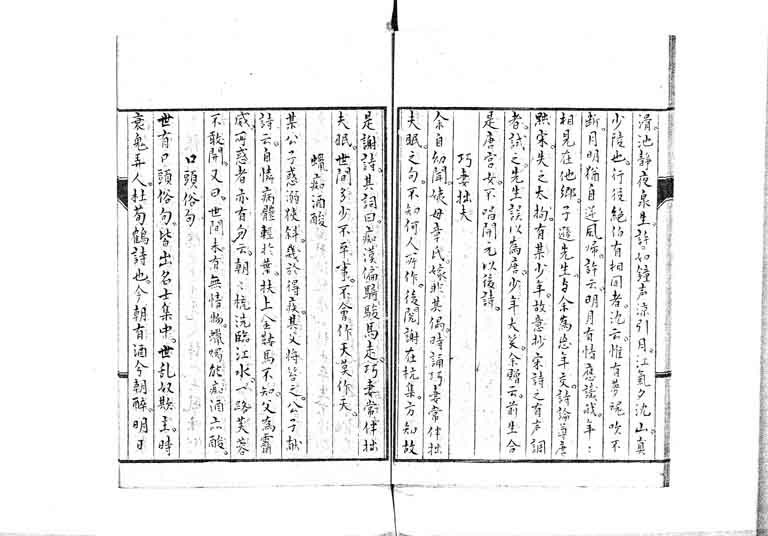 滑池靜夜泉生。許。如鐘声涼引月。江氣夕沈山。真
少陵也。行役絶伯有相同者。沈云。惟有夢魂吹不
断。月明猶自逆風歸。許云。明月有情應識我。年〻
相見在他鄉。子遜先生与余為忘年交。詩論尊唐
黜宋。失之太拘。有某少年。故意抄宋詩之有声調
者試之。先生誤以為唐。少年大笑。余贈云。前生合
是唐宮女。不唱開元以後詩。
巧妻拙夫
余自幼聞嫉母章氏。嫁非其偶。時誦巧妻常伴拙
夫眠之句。不知何人所作。後閲謝在杭集。方知故
是謝詩。其詞曰。痴漢偏騎駿馬走。巧妻常伴拙
夫眠。世間多少不平事。不會作天莫作天。
蠟痴酒酸
某公子惑溺狹斜。幾於得疾。其父將笞之。公子献
詩云。自憐病體輕於葉。扶上金鞍馬不知。父為霽
威。可惑者亦有句云。朝〻梳洗臨江水。一路芙蓉
不敢開。又曰。世間未有無情物。蠟燭能痴酒亦酸。
口頭俗句
世有口頭俗句。皆出名士集中。世乱奴欺主。時
衰鬼弄人。杜荀鶴詩也。今朝有酒今朝醉。明日